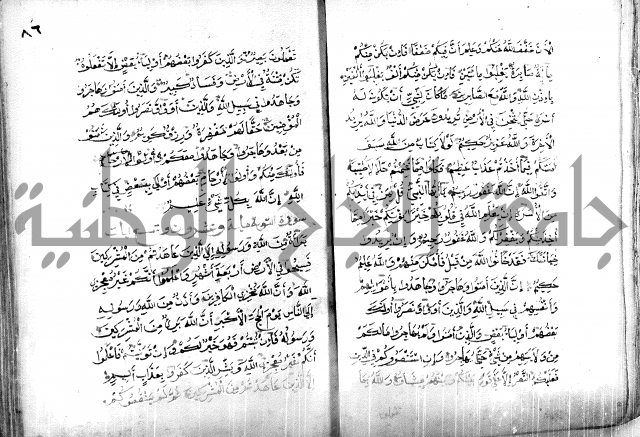 الان خفف الله عنكم وعلم ان فيكم ضعفا فان يكن منكم
ماية صابرة يغلبوا مايتين وان يكن منكم الف يغلبوا الفين
باذن الله والله مع الصابرين ما كان لنبي ان يكون له
اسرى حتى يثخن في الارض تريدون عرض الدنيا والله يريد
الاخرة والله عزيز حكيم لولا كتاب من الله سبق
لمسكم فيما اخذتم عذاب عظيم فكلوا مما غنمتم حلالا طيبا
واتقوا الله ان الله غفور رحيم يا ايها النبي قل لمن في ايديكم
من الاسرى ان يعلم الله في قلوبكم خيرا يوتكم خيرا مما
اخذ منكم ويغفر لكم والله غفور رحيم وان يريدوا
خيانتك فقد خانوا الله من قبل فامكن منهم والله عليم
حكيم ان الذين امنوا وهاجروا وجاهدوا باموالهم
وانفسهم في سبيل الله والذين اووا ونصروا اوليك
بعضهم اوليا بعض والذين امنوا ولم يهاجروا ما لكم
من ولايتهم من شي حتى يهاجروا وان استنصروكم في الدين
فعليكم النصر الا على قوم بينكم وبينهم ميثاق والله بما
تعملون
٨٦
تعملون بصير والذين كفروا بعضهم اوليا بعض الا تفعلوه
تكن فتنة في الارض وفساد كبير والذين امنوا وهاجروا
وجاهدوا في سبيل الله والذين اووا ونصروا اوليك هم
المومنون حقا لهم مغفرة ورزق كريم والذين امنوا
من بعد وهاجروا وجاهدوا معكم
فاوليك منكم واولوا الارحام بعضهم اولى ببعض في كتاب
الله ان الله بكل شي عليم
سورة التوبة ماية وعشرون
براة من الله ورسوله الى الذين عاهدتم من المشركين
فسيحوا في الارض اربعة اشهر واعلموا انكم غير معجزي
الله وان الله مخزي الكافرين واذان من الله ورسوله
الى الناس يوم الحج الاكبر ان الله بري من المشركين
ورسوله فان تبتم فهو خير لكم وان توليتم فاعلموا
انكم غير معجزي الله وبشر الذين كفروا بعذاب اليم
الا الذين عاهدتم من المشركين ثم لم ينقصوكم
جامعة النجاح الوطنية